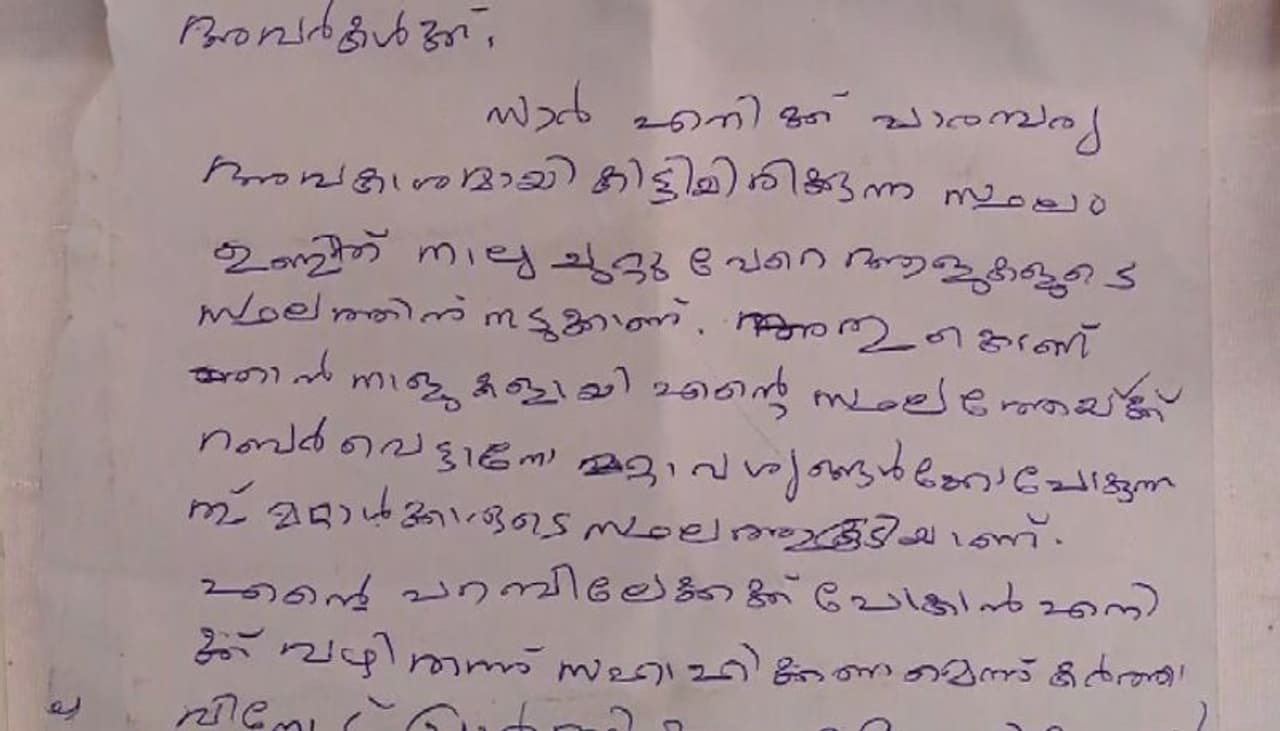 അവർകൾക്ക്,
സാർ എനിക്ക് പാരമ്പര്യ
അവകാശമായി കിട്ടിയിരിക്കുന്ന സ്ഥലം
ഉണ്ട് നാലു ചുറ്റു വേറെ ആളുകളുടെ
സ്ഥലത്തിന് നടുക്കാണ്. അതു കൊണ്ട്
ഞാൻ നാളുകളായി എന്റെ സ്ഥലത്തേയ്ക്ക്
റബർ വെട്ടാനോ മറ്റാവശ്യങ്ങൾക്കോ പോകുന്ന
ത് മറ്റാൾക്കാരുടെ സ്ഥലത്തുകൂടിയാണ്.
എന്റെ പറമ്പിലേക്കക്ക് പോകാൻ എനി
ക്ക് വഴി തന്ന് സഹായിക്കണമെന്ന് കർത്താ